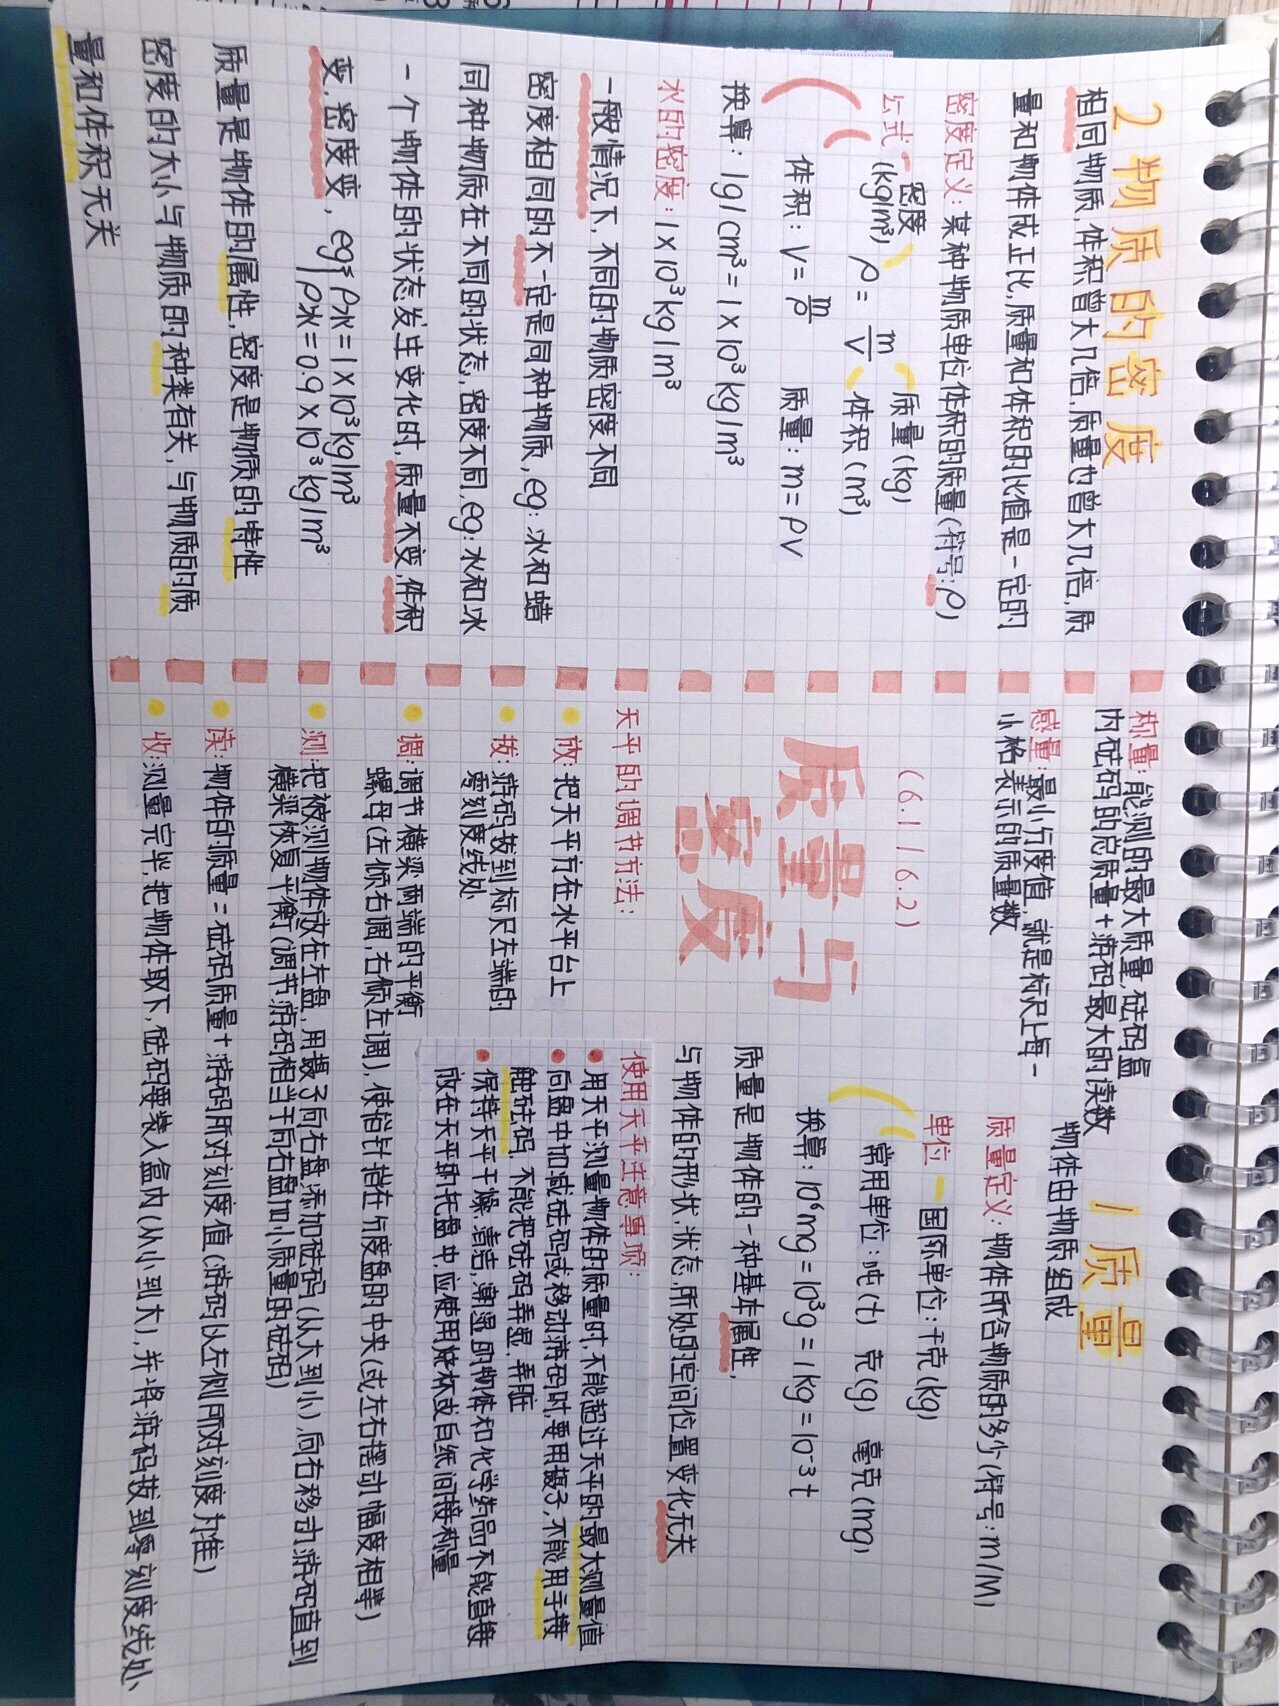 2 物质的密度
相同物质,体积曾大几倍,质量也曾大几倍,质
量和物体成正比,质量和体积的比值是一定的
密度定义:某种物质单位体积的质量(符号:ρ)
公式- 密度(kg/m³) ρ=m/V 质量(kg) 体积(m³)
体积:V=m/ρ 质量:m=ρv
换算:1g/cm³=1×10³kg/m³
水的密度:1×10³kg/m³
一般情况下,不同的物质密度不同
密度相同的不一定是同种物质,eg:冰和蜡
同种物质在不同的状态,密度不同,eg:水和冰
一个物体的状态发生变化时,质量不变,体积
变,密度变,eg ρ水=1×10³kg/m³
ρ冰=0.9×10³kg/m³
质量是物体的属性,密度是物质的特性
密度的大小与物质的种类有关,与物质的质
量和体积无关
称量:能测的最大质量,砝码盒
内砝码的总质量+游码最大的读数
感量:最小分度值,就是标尺上每一
小格表示的质量数
(6.1 | 6.2)
质量与
密度
1 质量
物体由物质组成
质量定义:物体所含物质的多少(符号:m/M)
单位-国际单位:千克(kg)
常用单位:吨(t) 克(g) 毫克(mg)
换算:10⁶mg=10³g=1kg=10⁻³t
质量是物体的一种基本属性,
与物体的形状,状态,所处的空间位置变化无关
天平的调节方法:
放:把天平方在水平台上
拔:游码拔到标尺左端的
零刻度线处
调:调节横梁两端的平衡
螺母(左倾右调,右倾左调),使指针指在分度盘的中央(或左右摆动幅度相等)
测:把被测物体放在左盘,用镊子向右盘添加砝码(从大到小),向右移动游码直到
横梁恢复平衡(调节游码相当于向右盘加小质量的砝码)
读:物件的质量=砝码质量+游码所对刻度值(游码以左侧所对刻度为准)
收:测量完毕,把物体取下,砝码要装入盒内(从小到大),并将游码拔到零刻度线处
使用天平注意事项:
用天平测量物体的质量时,不能超过天平的最大测量值
向盘中加减砝码或移动游码时,要用镊子,不能用手接
触砝码,不能把砝码弄湿,弄脏
保持天平干燥,清洁,潮湿的物体和化学药品不能直接
放在天平的托盘中,应使用烧杯或白纸间接称量